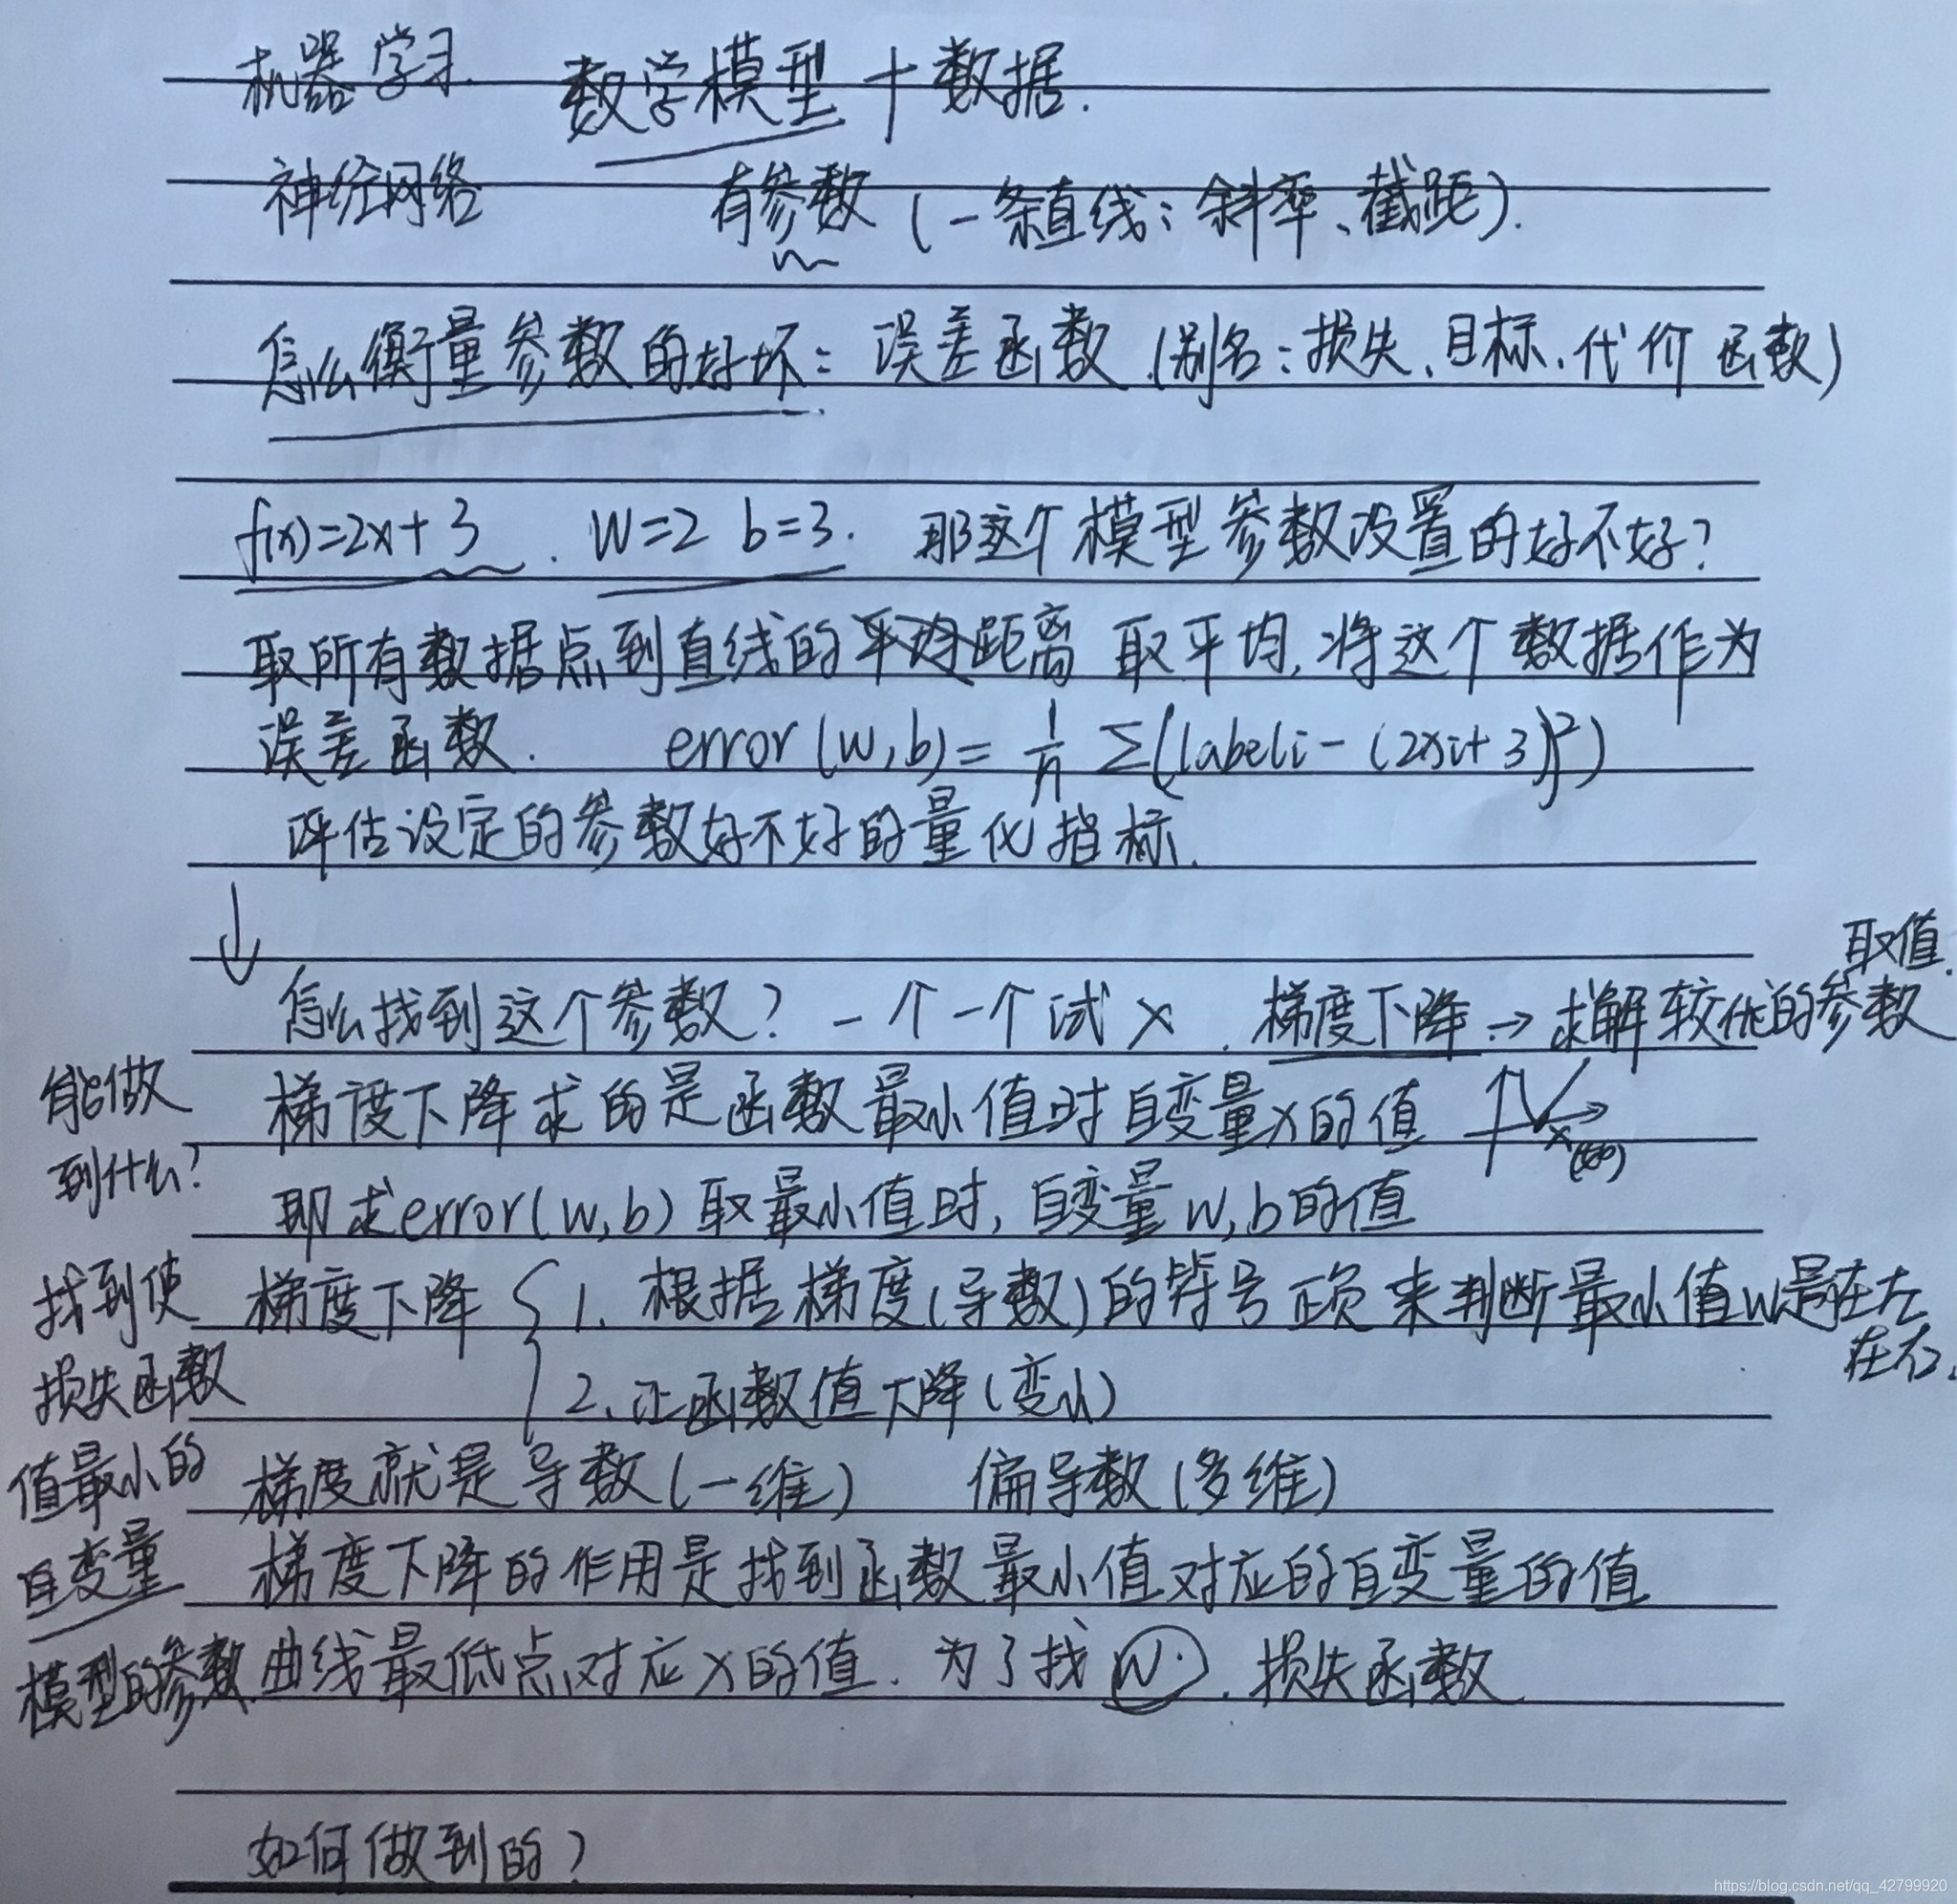 机器学习 数学模型+数据.
神经网络 有参数(一条直线:斜率、截距).
怎么衡量参数的好坏:误差函数(别名:损失、目标、代价函数)
f(x)=2x+3. W=2 b=3. 那这个模型参数设置的好不好?
取所有数据点到直线的平均距离 取平均,将这个数据作为
误差函数. error(w,b)= 1/n Σ(labeli-(2xi+3)²)
评估设定的参数好不好的量化指标.
↓
取值.
怎么找到这个参数? 一个一个试 × . 梯度下降→求解较优的参数
能做
到什么?
梯度下降求的是函数最小值时自变量x的值
x
即求error(w,b)取最小值时,自变量w,b的值
找到使
损失函数
值最小的
自变量
模型的参数
梯度下降 { 1. 根据梯度(导数)的符号正负来判断最小值w是在左
在右.
2. 让函数值下降(变小)
梯度就是导数(一维) 偏导数(多维)
梯度下降的作用是找到函数最小值对应的自变量的值
曲线最低点对应x的值. 为了找 W. 损失函数
如何做到的?
https://blog.csdn.net/qq_42799920